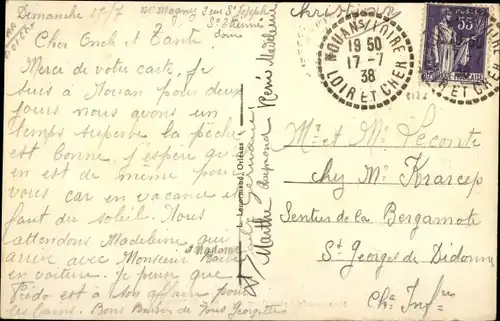 Dimanche 17/7
Cher Oncle et Tante
Merci de votre carte, je
suis à Nouan pour deux
jours nous avons un
temps superbe la pêche
est bonne, j'espère qu'il
en est de même pour
vous car en vacance il
faut du soleil. Nous
attendons Madeleine qui
arrive avec Monsieur
en voiture. Je pense que
Fredo est à son affaire pour
les bains. Bons Baisers de Tous Georgette
Mr Magny 2 rue St Joseph
St Etienne
Loire
Marthe Raymond René Madeleine
Germaine
Leyormand, Orléans
Madame
NOUAN S/LOIRE
19 50
17 - 7
38
LOIR ET CHER
POSTES
55c
Mr et Me Leconte
chez Mr Krarcep
Sentier de la Bergamote
St Georges de Didonne
Chte Infre